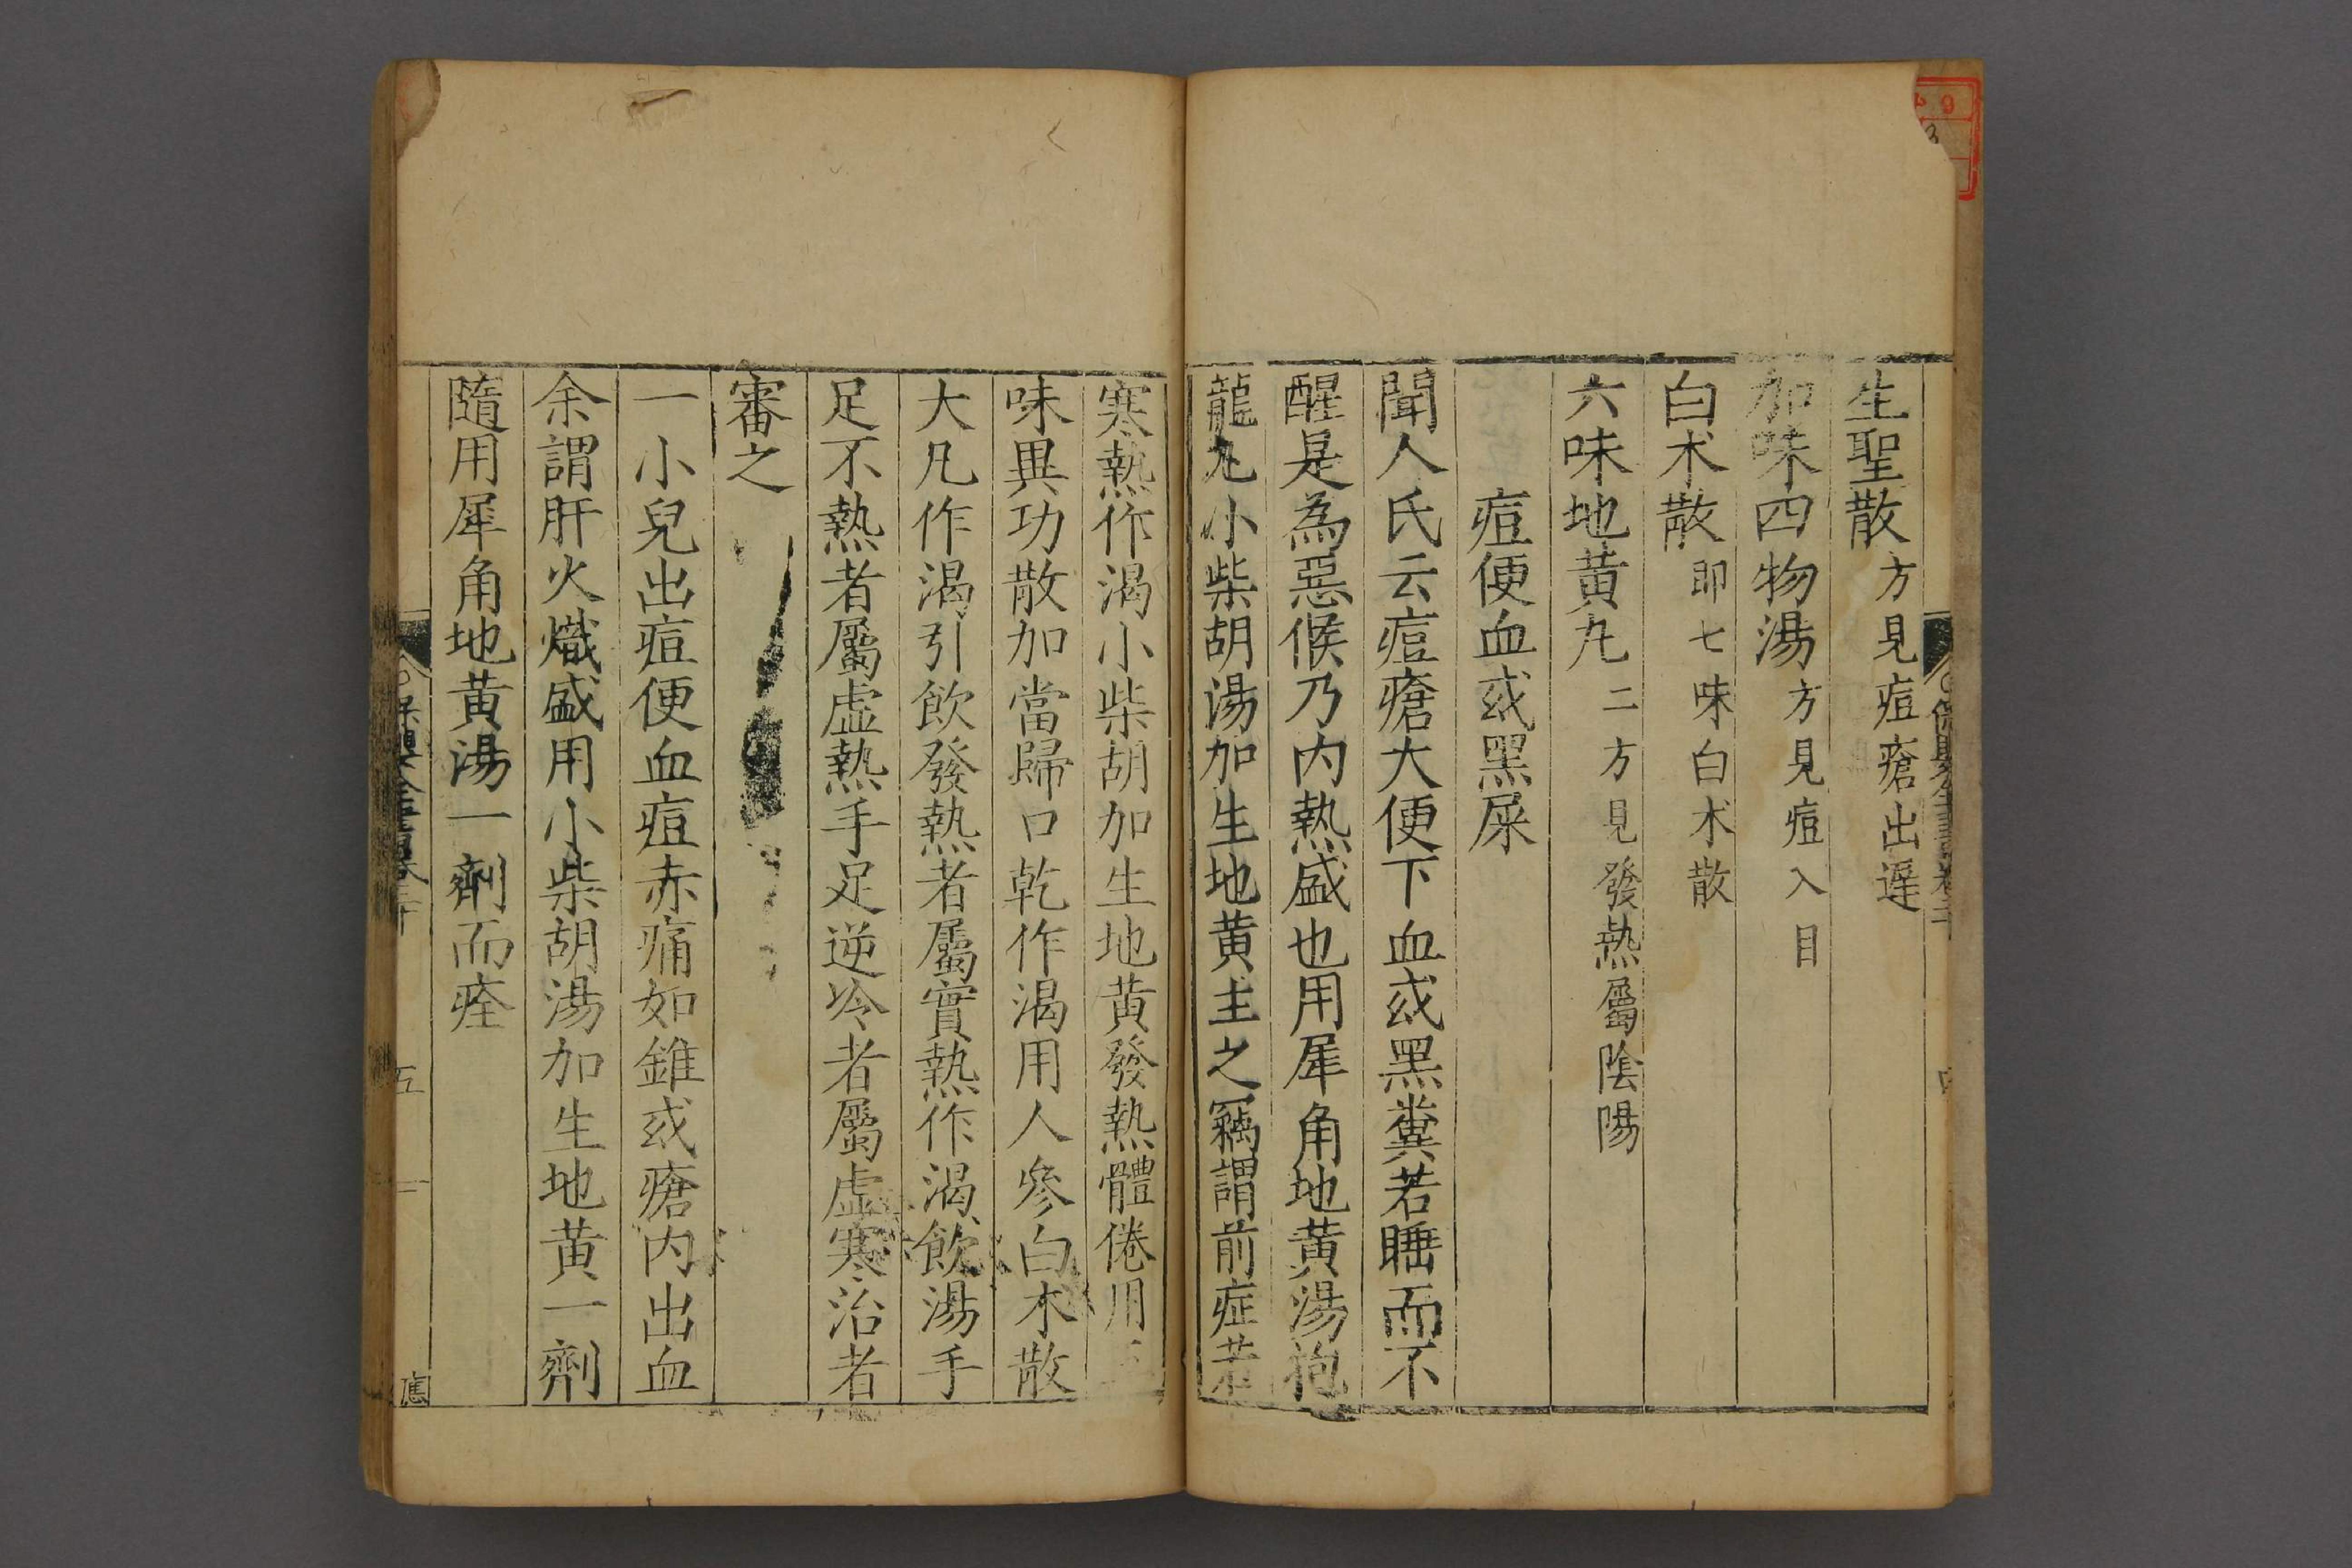 生聖散方見痘瘡出遲
加味四物湯方見痘入目
白朮散即七味白朮散
六味地黃丸二方見發熱屬陰陽
痘便血或黑屎
聞人氏云痘瘡大便下血或黑糞若睡而不
醒是為惡候乃内熱盛也用犀角地黃湯抱
龍丸小柴胡湯加生地黃主之竊謂前症若
寒熱作渴小柴胡加生地黃發熱體倦用五
味異功散加當歸口乾作渴用人參白朮散
大凡作渴引飲發熱者屬實熱作渴飲湯手
足不熱者屬虛熱手足逆冷者屬虛寒治者
審之
一小兒出痘便血痘赤痛如錐或瘡内出血
余謂肝火熾盛用小柴胡湯加生地黃一劑
隨用犀角地黃湯一劑而痊
五